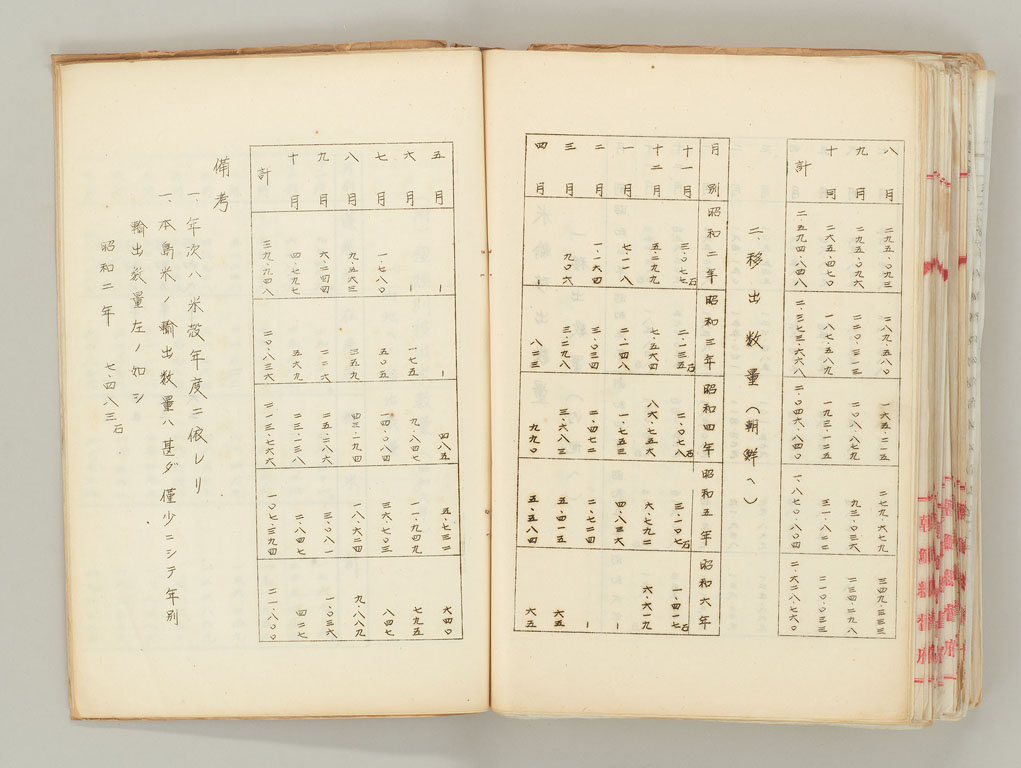 八月 二九五・〇九三 二八九・五八〇 一六五・二一五 二七九・六七九 三四九・三三三
九月 二九五・〇九六 二二〇・三一三 二〇八・八七九 九三・〇三六 二三四・二九八
十同 二六五・四七〇 一八七・五八九 一九三・一二五 三一・八二二 二一〇・〇二三
計 二・五九四・八四八 二・三七三・六六八 二・〇四六・八四〇 一・八七〇・八〇四 二・六二八・七六〇
二 移出数量(朝鮮ヘ)
月別 昭和二年 昭和三年 昭和四年 昭和五年 昭和六年
十一月 三・〇七七石 二・一三五石 二・〇七八石 三・一〇七石 一・四一七石
十二月 五・二九九 七・五六四 八六・七五六 六・七九二 六・六一九
一月 七・一一八 二・一四八 一・七五三 四・八三六 ー
二月 一・一六四 三・〇三四 二・四七二 二・七二四 ー
三月 九〇六 三・二九八 三・六八三 五・四一五 六五
四月 ー 八二三 九九〇 五・五八四 六五
五月 ー ー 四八五 五・七三二 六四〇
六月 ー 一七五 九・八四七 一一・九四九 七九五
七月 一・七八〇 五〇五 一四・〇八四 三六・七〇三 八四七
八月 九・五六三 三五九 四三・一九四 一八・六二四 九・八八九
九月 六・二四四 二二六 二五・二八六 三・〇八一 一・〇三六
十月 四・七九七 五六九 二三・一三八 二・八四七 四二七
計 三九・九四八 二〇・八三六 二一三・七六六 一〇七・三九四 二一・八〇〇
備考
一、年次ハ米穀年度ニ依レリ
一、本島米ノ輸出数量ハ甚ダ僅少ニシテ年別
輸出数量左ノ如シ
昭和二年 七・四八三石